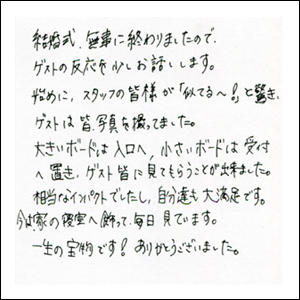 結婚式、無事に終わりましたので、
ゲストの反応を少しお話しします。
始めに、スタッフの皆様が「似てる〜!」と驚き、
ゲストは皆、写真を撮ってました。
大きいボードは入口へ、小さいボードは受付
へ置き、ゲスト皆に見てもらうことが出来ました。
相当なインパクトでしたし、自分達も大満足です。
今は家の寝室へ飾って、毎日見ています。
一生の宝物です!ありがとうございました。